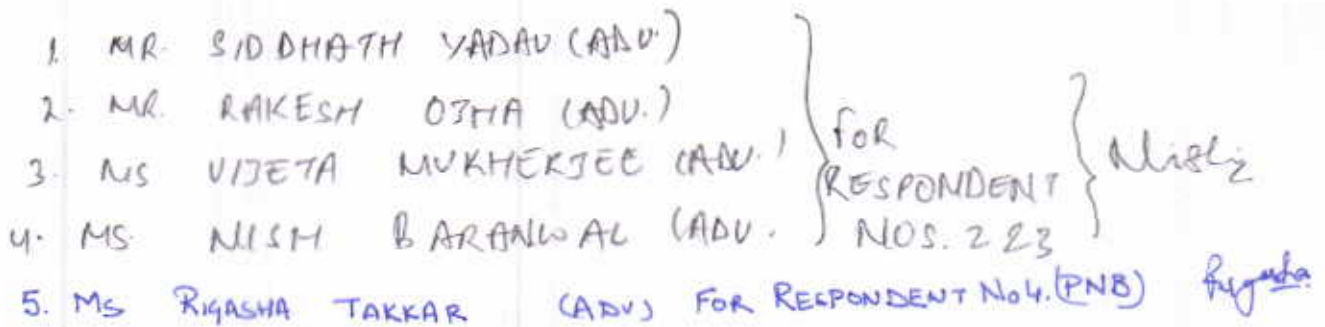 1. MR. SIDDHATH YADAV (ADV.)
2. MR. RAKESH OJHA (ADV.)
3. MS VIJETA MUKHERJEE (ADV.)
4. MS. NISHI BARANWAL (ADV.
FOR
RESPONDENT
NOS. 2 & 3
Nishi
5. MS RIGASHA TAKKAR (ADV) FOR RESPONDENT No 4. (PNB)